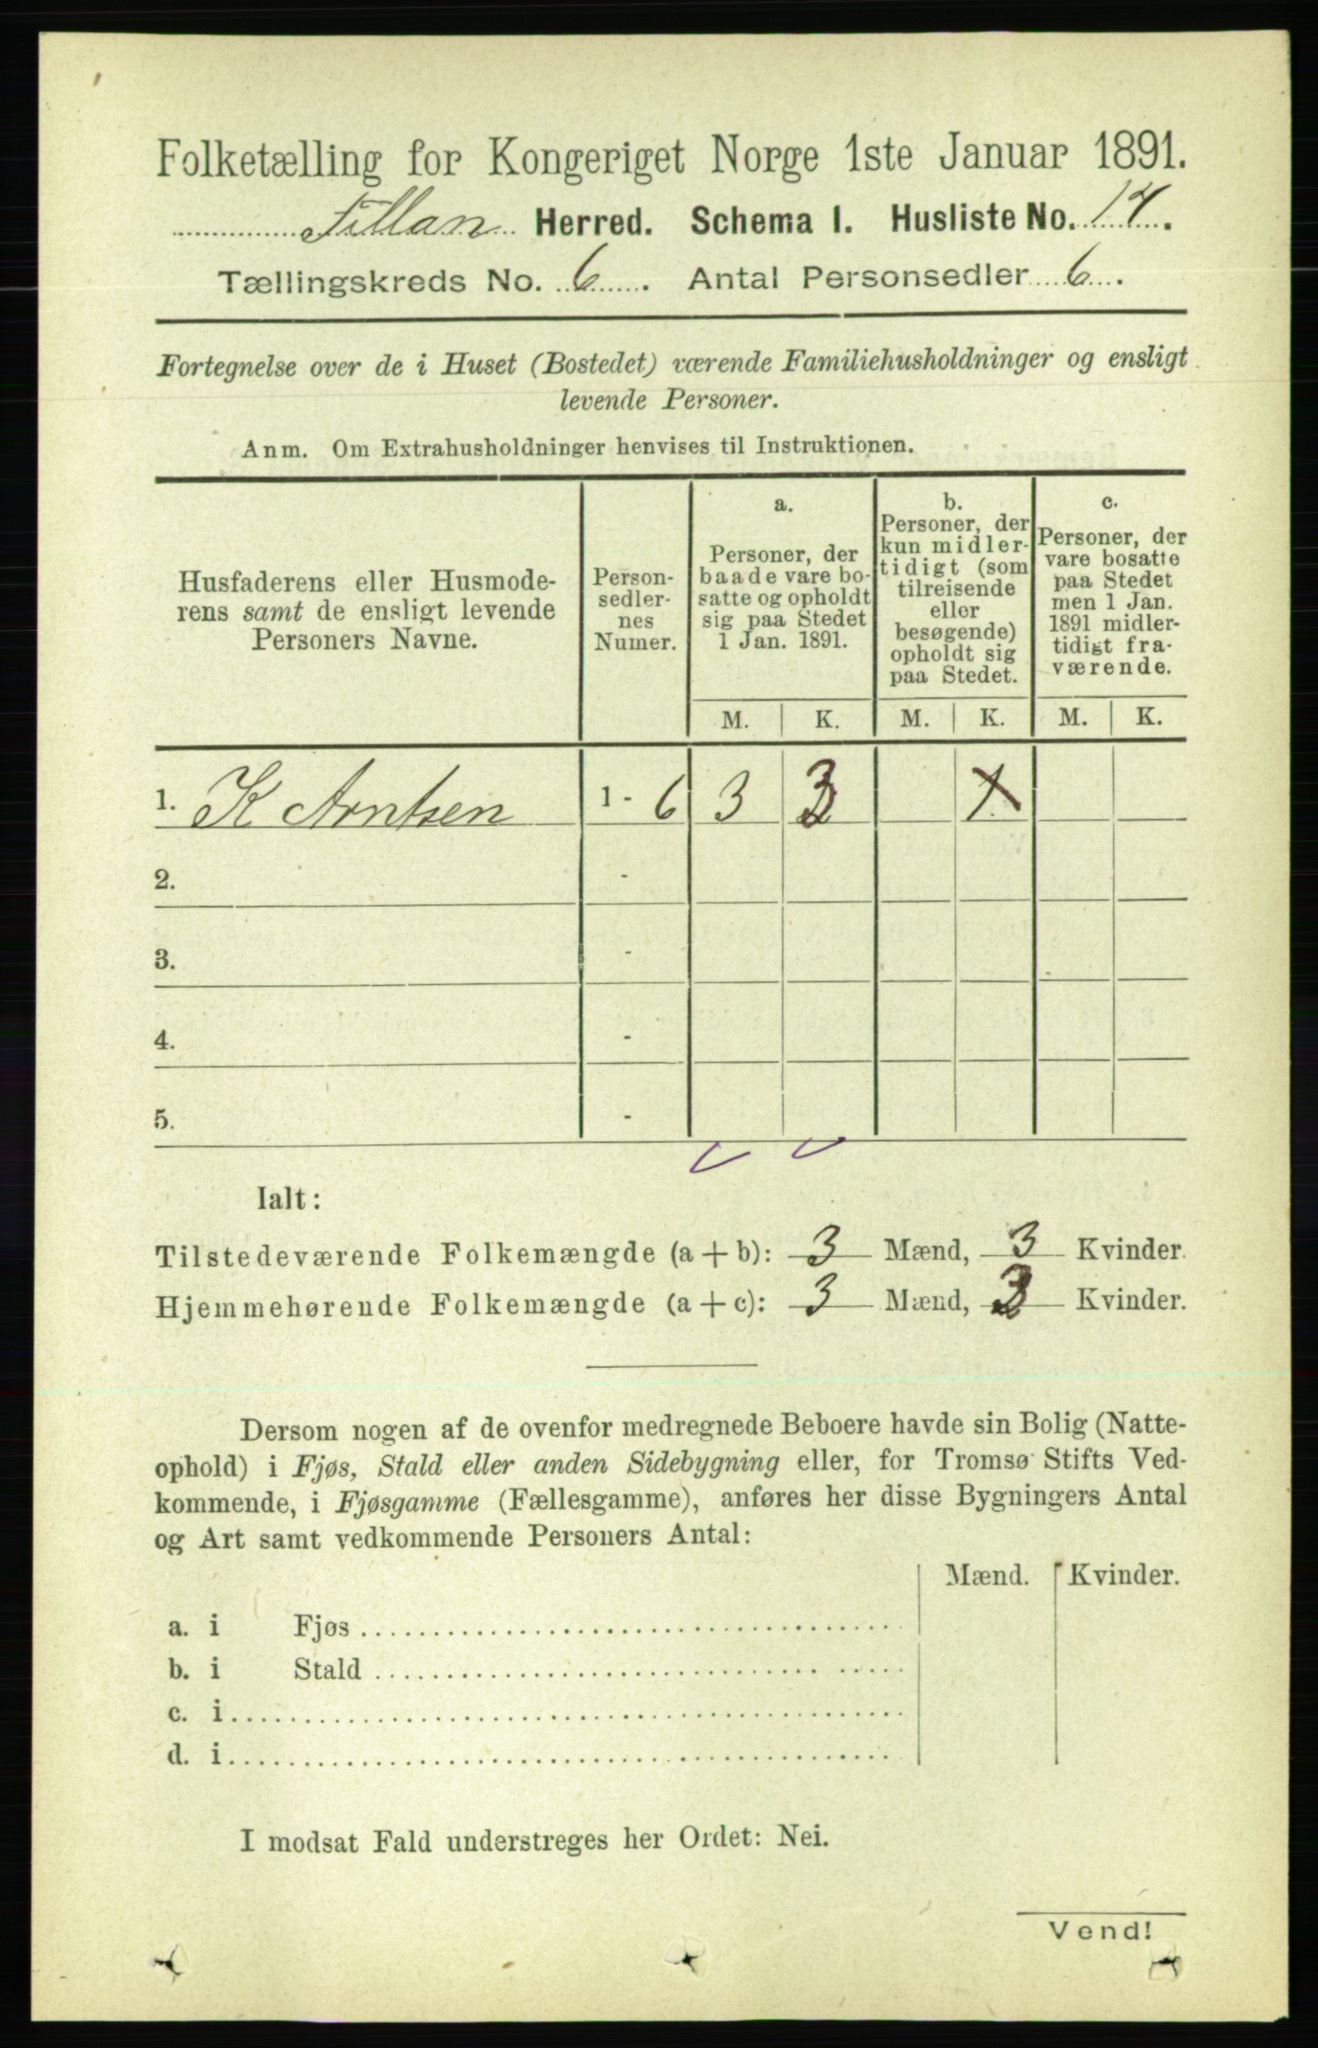 Folketælling for Kongeriget Norge 1ste Januar 1891.
Fillan Herred. Schema I. Husliste No. 14.
Tællingskreds No. 6. Antal Personsedler 6.
Fortegnelse over de i Huset (Bostedet) værende Familiehusholdninger og ensligt
levende Personer.
Anm. Om Extrahusholdninger henvises til Instruktionen.
Husfaderens eller Husmode-
rens samt de ensligt levende
Personers Navne.
Person-
sedler-
nes
Numer.
a.
Personer, der
baade vare bo-
satte og opholdt
sig paa Stedet
1 Jan. 1891.
b.
Personer, der
kun midler-
tidigt (som
tilreisende
eller
besøgende)
opholdt sig
paa Stedet.
c.
Personer, der
vare bosatte
paa Stedet
men 1 Jan.
1891 midler-
tidigt fra-
værende.
M. K. M. K. M. K.
1. K Arntsen 1 - 6 3 3
2. -
3. -
4. -
5. -
Ialt:
Tilstedeværende Folkemængde (a + b): 3 Mænd, 3 Kvinder.
Hjemmehørende Folkemængde (a + c): 3 Mænd, 3 Kvinder.
Dersom nogen af de ovenfor medregnede Beboere havde sin Bolig (Natte-
ophold) i Fjøs, Stald eller anden Sidebygning eller, for Tromsø Stifts Ved-
kommende, i Fjøsgamme (Fællesgamme), anføres her disse Bygningers Antal
og Art samt vedkommende Personers Antal:
Mænd. Kvinder.
a. i Fjøs
b. i Stald
c. i
d. i
I modsat Fald understreges her Ordet: Nei.
Vend!